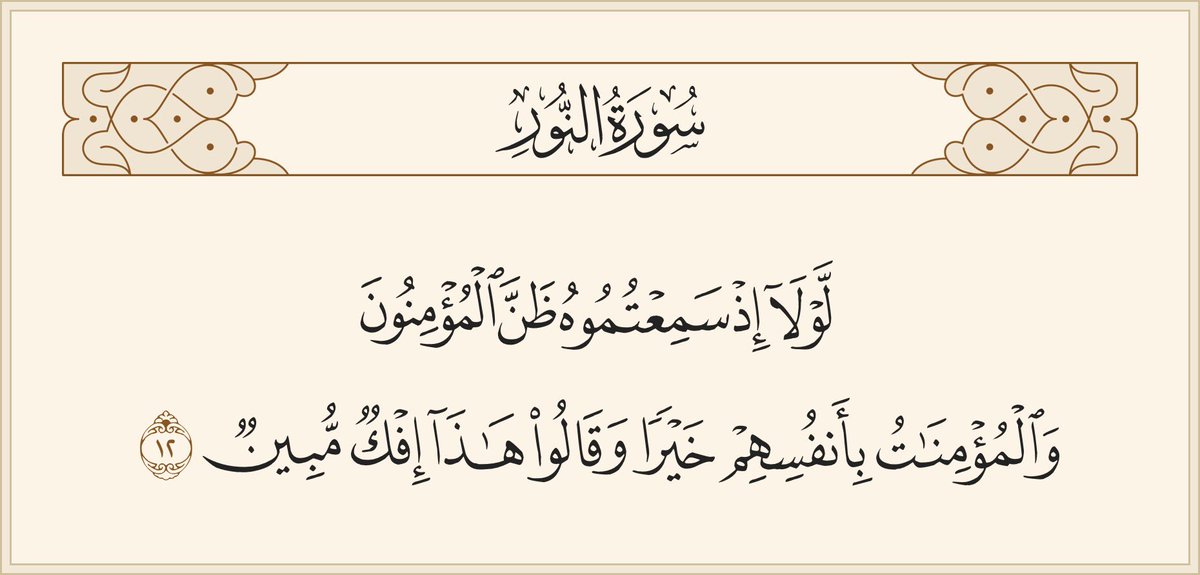 سُورَةُ النُّورِ
لَّوْلَآ إِذْ سَمِعْتُمُوهُ ظَنَّ ٱلْمُؤْمِنُونَ
وَٱلْمُؤْمِنَـٰتُ بِأَنفُسِهِمْ خَيْرًا وَقَالُوا۟ هَـٰذَآ إِفْكٌ مُّبِينٌ ١٢